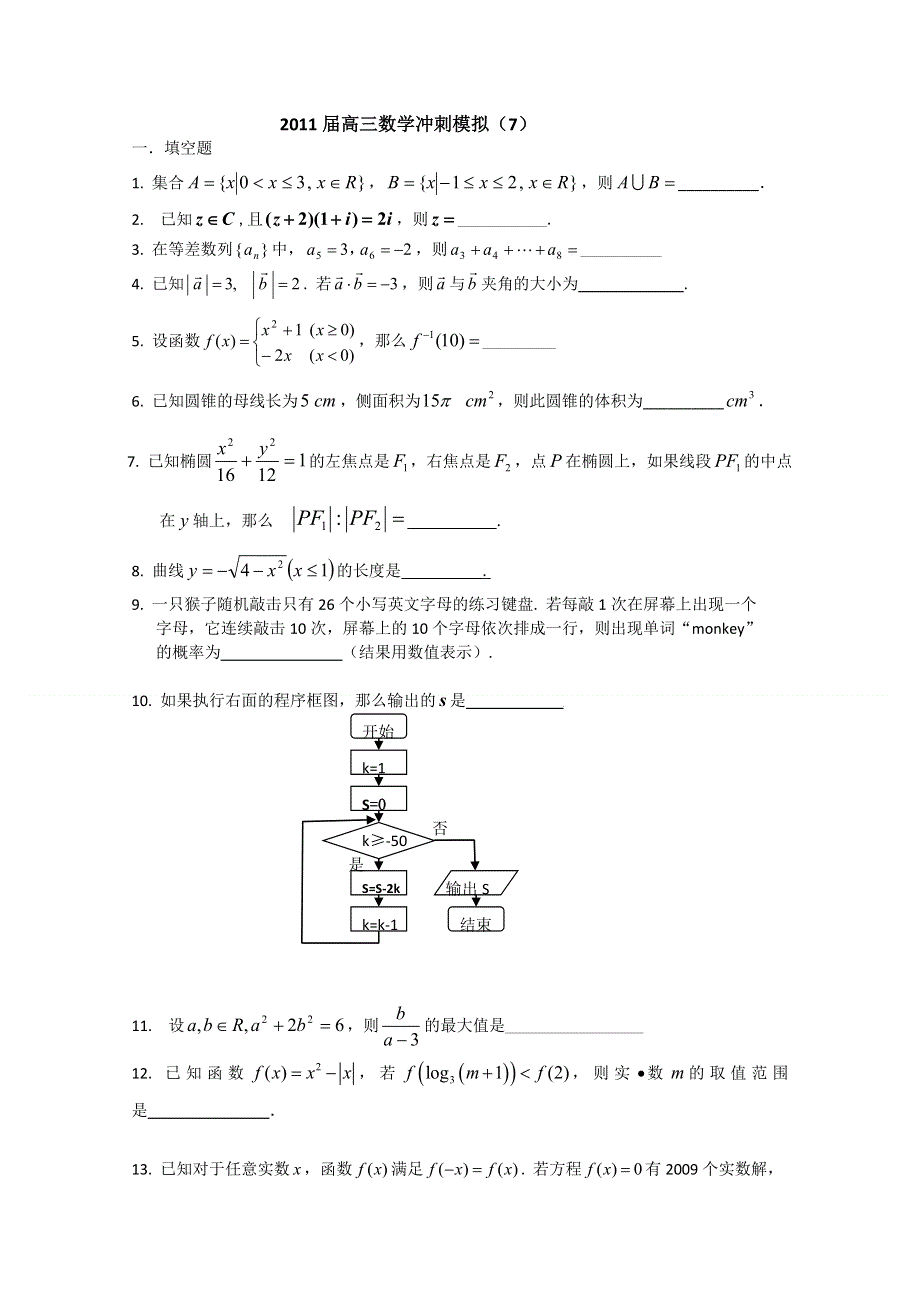 2011届高三数学冲刺模拟（7）
一．填空题
1. 集合 A = {x|0 < x ≤ 3, x ∈ R}，B = {x|−1 ≤ x ≤ 2, x ∈ R}，则 A⋃B = __________．
2. 已知 z ∈ C ,且 (z + 2)(1 + i) = 2i，则 z = ___________.
3. 在等差数列{aₙ}中，a₅ = 3, a₆ = −2，则 a₃ + a₄ + ⋯ + a₈ = __________
4. 已知|a⃗| = 3, |b⃗| = 2. 若 a⃗·b⃗ = −3，则 a⃗ 与 b⃗ 夹角的大小为_____________.
5. 设函数 f(x) = { x² + 1 (x ≥ 0) −2x (x < 0)，那么 f⁻¹(10) = _________
6. 已知圆锥的母线长为5 cm，侧面积为15π cm²，则此圆锥的体积为__________cm³．
7. 已知椭圆 x²/16 + y²/12 = 1 的左焦点是 F₁，右焦点是 F₂，点 P 在椭圆上，如果线段 PF₁ 的中点
在 y 轴上，那么 |PF₁| : |PF₂| = ___________.
8. 曲线 y = −√(4 − x²) (x ≤ 1) 的长度是__________．
9. 一只猴子随机敲击只有 26 个小写英文字母的练习键盘. 若每敲 1 次在屏幕上出现一个
字母，它连续敲击 10 次，屏幕上的 10 个字母依次排成一行，则出现单词“monkey”
的概率为_______________（结果用数值表示）.
10. 如果执行右面的程序框图，那么输出的 s 是____________
开始
k=1
S=0
否
k≥-50
是
S=S-2k 输出 S
k=k-1 结束
11. 设 a,b ∈ R, a² + 2b² = 6，则 b/(a−3) 的最大值是_________________
12. 已知函数 f(x) = x² − |x|，若 f(log₃(m+1)) < f(2)，则实•数 m 的取值范围
是_______________．
13. 已知对于任意实数 x，函数 f(x) 满足 f(−x) = f(x). 若方程 f(x) = 0 有 2009 个实数解，